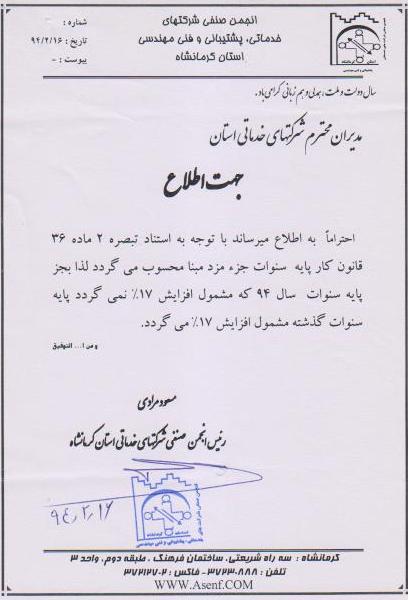 انجمن صنفی شرکتهای
خدماتی، پشتیبانی و فنی مهندسی
استان کرمانشاه
شماره :
تاریخ : ۹۴/۲/۱۶
پیوست : -
سال دولت و ملت، همدلی و هم زبانی گرامی باد.
مدیران محترم شرکتهای خدماتی استان
جهت اطلاع
احتراماً به اطلاع میرساند با توجه به استناد تبصره ۲ ماده ۳۶
قانون کار پایه سنوات جزء مزد مبنا محسوب می گردد لذا بجز
پایه سنوات سال ۹۴ که مشمول افزایش ۱۷٪ نمی گردد پایه
سنوات گذشته مشمول افزایش ۱۷٪ می گردد.
و من ا... التوفیق
مسعود مرادی
رئیس انجمن صنفی شرکتهای خدماتی استان کرمانشاه
۹۴,۲,۱۶
کرمانشاه : سه راه شریعتی، ساختمان فرهنگ ، طبقه دوم، واحد ۳
تلفن : ۸۸۸-۳۷۲۳ فاکس : ۲-۳۷۲۲۷
WWW.Asenf.COM